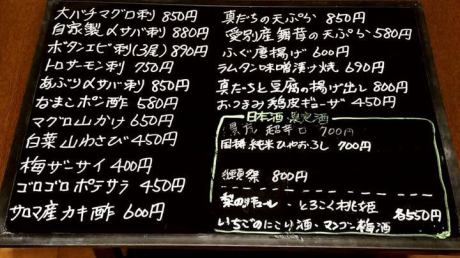 大バチマグロ刺 850円
自家製〆サバ刺 880円
ボタンエビ刺(3尾) 890円
トロサーモン刺 750円
あぶり〆サバ刺 850円
なまこポン酢 580円
マグロ山かけ 650円
白菜山わさび 450円
梅ザーサイ 400円
ゴロゴロポテサラ 450円
サロマ産カキ酢 600円
真だちの天ぷら 850円
愛別産舞茸の天ぷら 580円
ふぐ唐揚げ 600円
ラムタン味噌漬け焼 690円
真だちと豆腐の揚げ出し 800円
おつまみ鶏皮ギョーザ 450円
日本酒 限定酒
超辛口 700円
国稀 純米ひやおろし 700円
獺祭 800円
梨のリキュール・とろこく桃姫
いちごのにごり酒・マンゴー梅酒 各550円